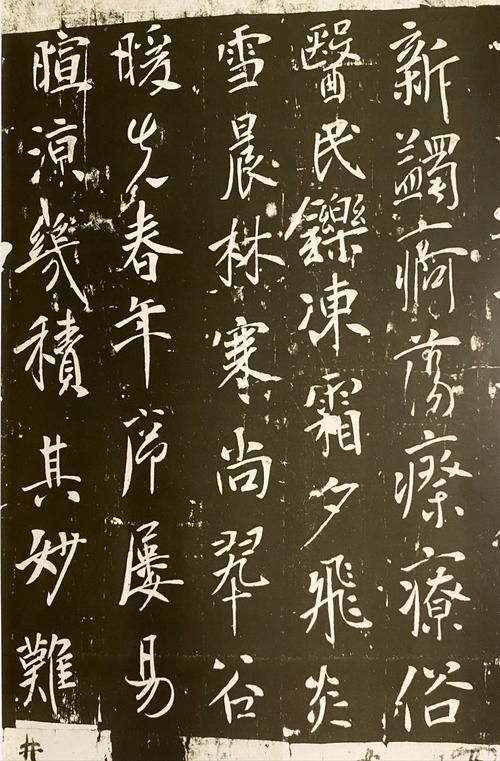 新蠲痾蕩瘵療俗
醫民鑠凍霜夕飛炎
雪晨林寒尚翠谷
暖先春年屢易
暄涼幾積其妙難